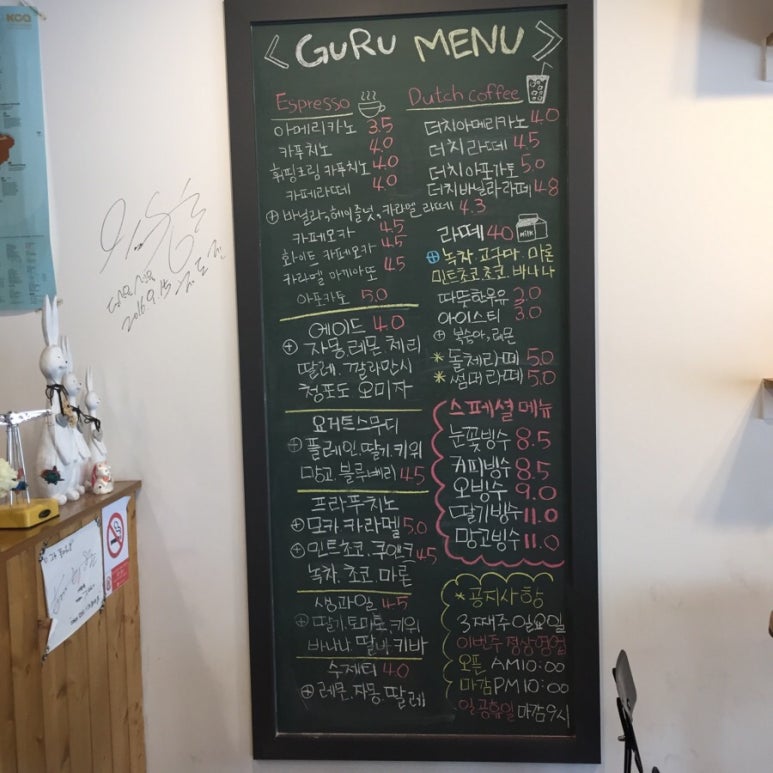 KCO
< GURU MENU >
Espresso
아메리카노 3.5
카푸치노 4.0
휘핑크림 카푸치노 4.0
카페라떼 4.0
+ 바닐라, 헤이즐넛, 카라멜 라떼 4.3
카페모카 4.5
화이트 카페모카 4.5
카라멜 마끼아또 4.5
아포카토 5.0
에이드 4.0
+ 자몽. 레몬. 체리
딸레. 깔라만시
청포도 오미자
요거트스무디
+ 플레인. 딸기. 키위
망고. 블루베리 4.5
프라푸치노
+ 모카 카라멜 5.0
+ 민트초코. 쿠앤크 4.5
녹차. 초코. 마론
생과일 4.5
+ 딸기. 토마토. 키위
바나나. 딸바. 키바
수제티 4.0
+ 레몬. 자몽. 딸레
Dutch coffee
더치아메리카노 4.0
더치라떼 4.5
더치아포가토 5.0
더치바닐라라떼 4.8
라떼 4.0
milk
+ 녹차. 고구마. 마론
민트초코. 초코. 바나나
따뜻한우유 2.0
아이스티 3.0
+ 복숭아, 레몬
* 돌체라떼 5.0
* 썸머라떼 5.0
스페셜 메뉴
눈꽃빙수 8.5
커피빙수 8.5
오빙수 9.0
딸기빙수 11.0
망고빙수 11.0
* 공지사항
3째주 일요일
이번주 정상영업
오픈 AM10:00
마감 PM 10:00
일.공휴일 마감9시
2016.9.15